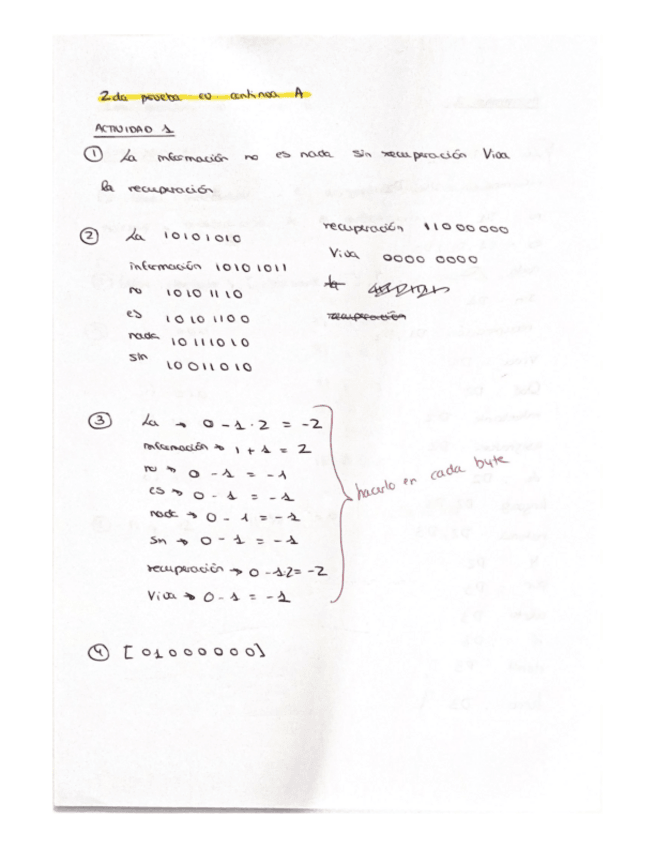 2da prueba ev. continua A
ACTIVIDAD 1
① La información no es nada sin recuperación Viva
la recuperación
② La 10101010
información 10101011
no 10101110
es 10101100
nada 10111010
sin 10011010
recuperación 11000000
Viva 0000 0000
la
recuperación
③ La → 0 - 1 · 2 = -2
información → 1 + 1 = 2
no → 0 - 1 = -1
es → 0 - 1 = -1
nada → 0 - 1 = -1
sin → 0 - 1 = -1
recuperación → 0 - 1·2 = -2
Viva → 0 - 1 = -1
hacerlo en cada byte
④ [01000000]